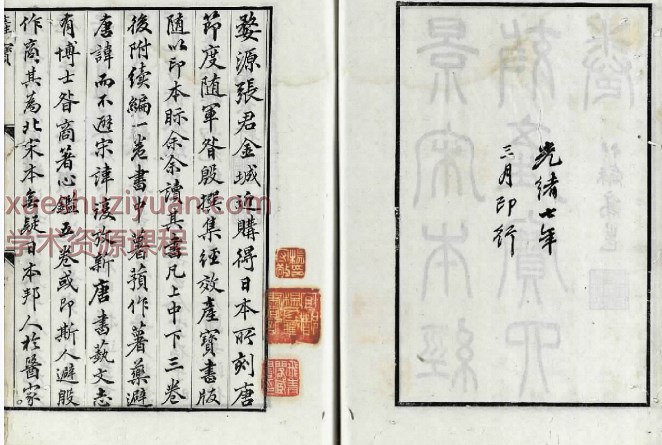 光緒七年
三月印行
婺源張君金城近購得日本所刻唐
節度随軍昝殷撰集經效產寶書版
随以印本眎余余讀其書凡上中下三卷
後附續編一卷書中薯蕷作薯藥避
唐諱而不避宋諱新唐書藝文志
有博士昝商著心鑑五卷或即斯人避殷
作商其為北宋本無疑日本邦人於醫家
產寶
xueshuziyuan.com
学术资源课程